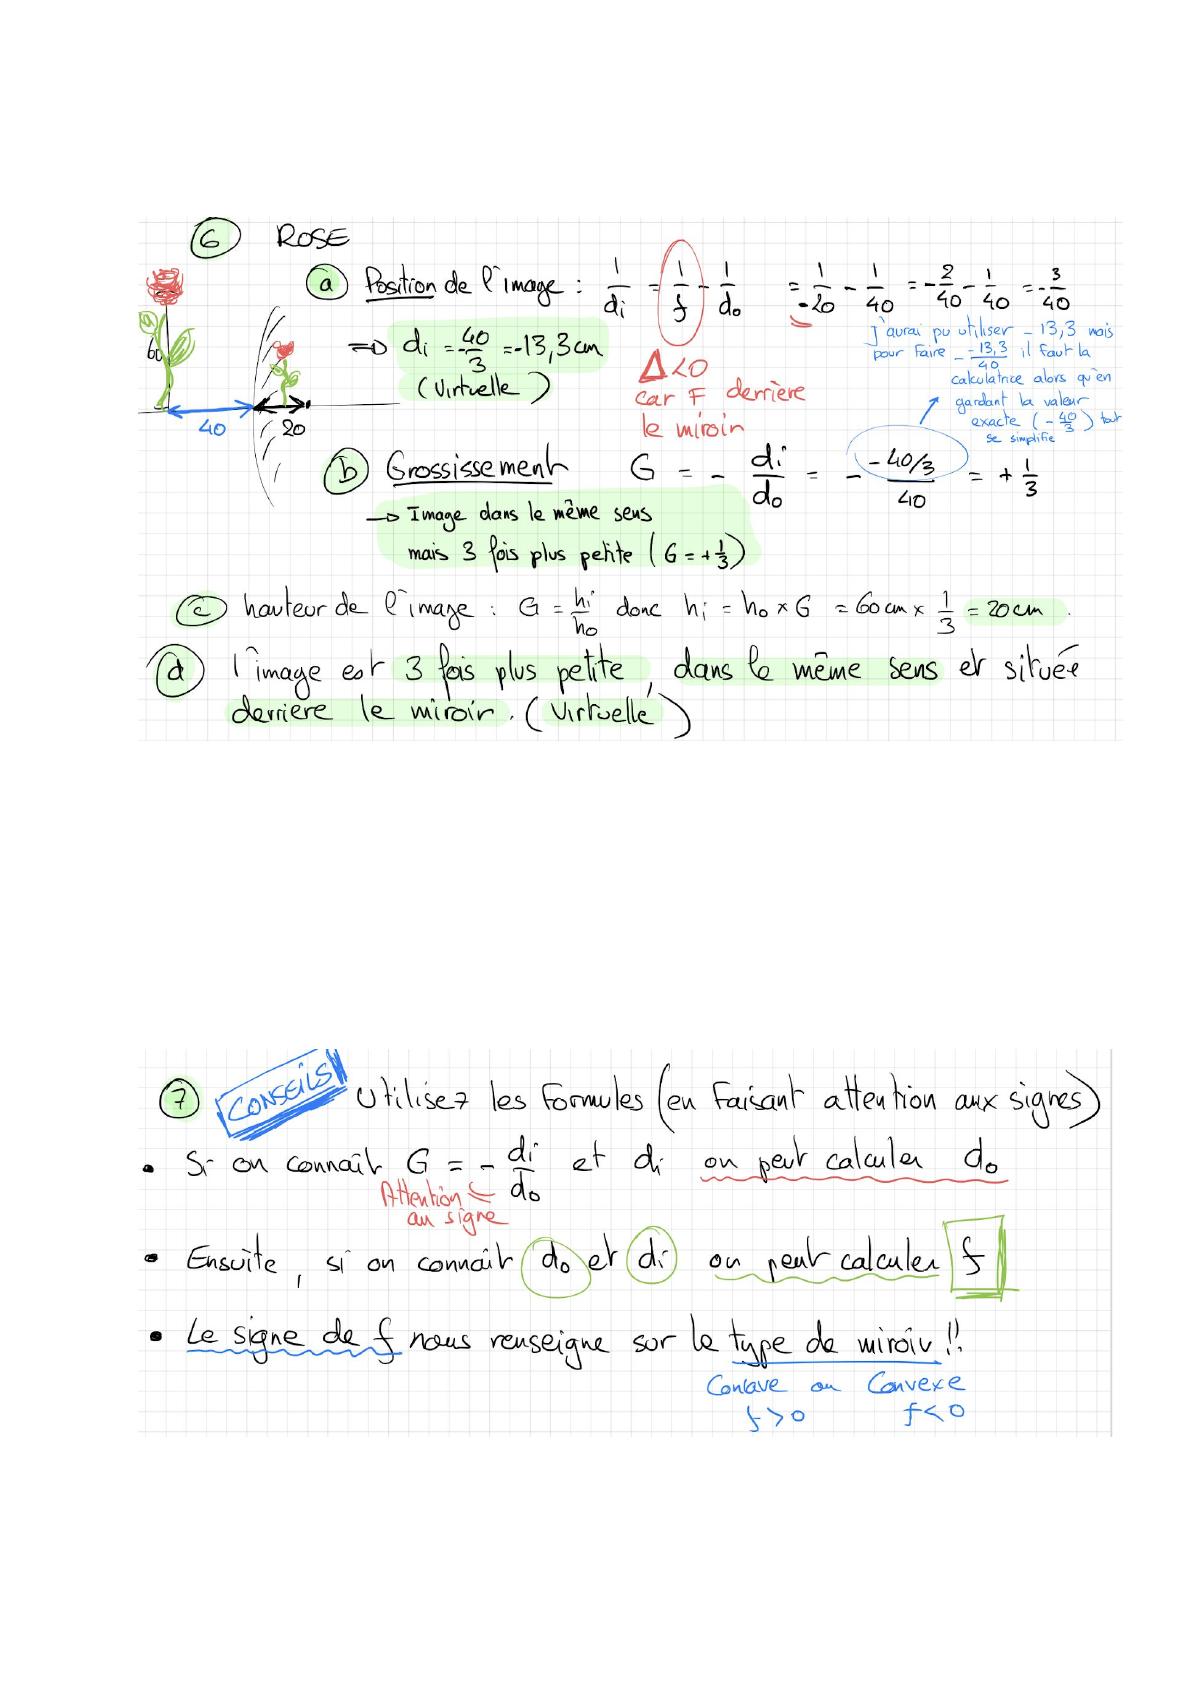 6 ROSE
a Position de l'image : 1/di = 1/f - 1/do = 1/-20 - 1/40 = -2/40 - 1/40 = -3/40
=> di = -40/3 = -13,3 cm
(Virtuelle)
Δ<0
car F derrière
le miroir
J'aurai pu utiliser -13,3 mais
pour faire - -13,3/40 il faut la
calculatrice alors qu'en
gardant la valeur
exacte (-40/3) tout
se simplifie
60
40
20
b Grossissement G = - di/do = - -40/3/40 = + 1/3
-> Image dans le même sens
mais 3 fois plus petite (G = +1/3)
c hauteur de l'image : G = hi/ho donc hi = ho × G = 60 cm × 1/3 = 20 cm.
d l'image est 3 fois plus petite, dans le même sens et située
derrière le miroir. (Virtuelle)
7 CONSEILS Utilisez les formules (en faisant attention aux signes)
• Si on connaît G = - di/do et di on peut calculer do
Attention
au signe
• Ensuite, si on connaît do et di on peut calculer f
• Le signe de f nous renseigne sur le type de miroir !!
Concave ou Convexe
f>0 f<0